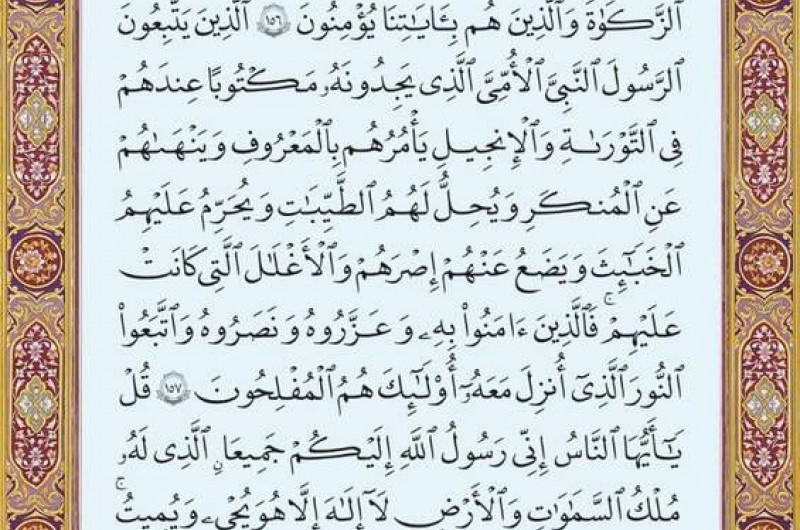 ٱلزَّكَوٰةَ وَٱلَّذِينَ هُم بِـَٔايَـٰتِنَا يُؤْمِنُونَ ١٥٦ ٱلَّذِينَ يَتَّبِعُونَ
ٱلرَّسُولَ ٱلنَّبِىَّ ٱلْأُمِّىَّ ٱلَّذِى يَجِدُونَهُۥ مَكْتُوبًا عِندَهُمْ
فِى ٱلتَّوْرَىٰةِ وَٱلْإِنجِيلِ يَأْمُرُهُم بِٱلْمَعْرُوفِ وَيَنْهَىٰهُمْ
عَنِ ٱلْمُنكَرِ وَيُحِلُّ لَهُمُ ٱلطَّيِّبَـٰتِ وَيُحَرِّمُ عَلَيْهِمُ
ٱلْخَبَـٰٓئِثَ وَيَضَعُ عَنْهُمْ إِصْرَهُمْ وَٱلْأَغْلَـٰلَ ٱلَّتِى كَانَتْ
عَلَيْهِمْ ۚ فَٱلَّذِينَ ءَامَنُوا۟ بِهِۦ وَعَزَّرُوهُ وَنَصَرُوهُ وَٱتَّبَعُوا۟
ٱلنُّورَ ٱلَّذِىٓ أُنزِلَ مَعَهُۥٓ أُو۟لَـٰٓئِكَ هُمُ ٱلْمُفْلِحُونَ ١٥٧ قُلْ
يَـٰٓأَيُّهَا ٱلنَّاسُ إِنِّى رَسُولُ ٱللَّهِ إِلَيْكُمْ جَمِيعًا ٱلَّذِى لَهُۥ
مُلْكُ ٱلسَّمَـٰوَٰتِ وَٱلْأَرْضِ لَآ إِلَـٰهَ إِلَّا هُوَ يُحْىِۦ وَيُمِيتُ ۖ